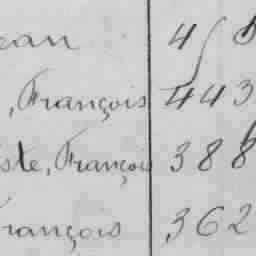 ean 4
, François 443
ste, François 388
rançois 362